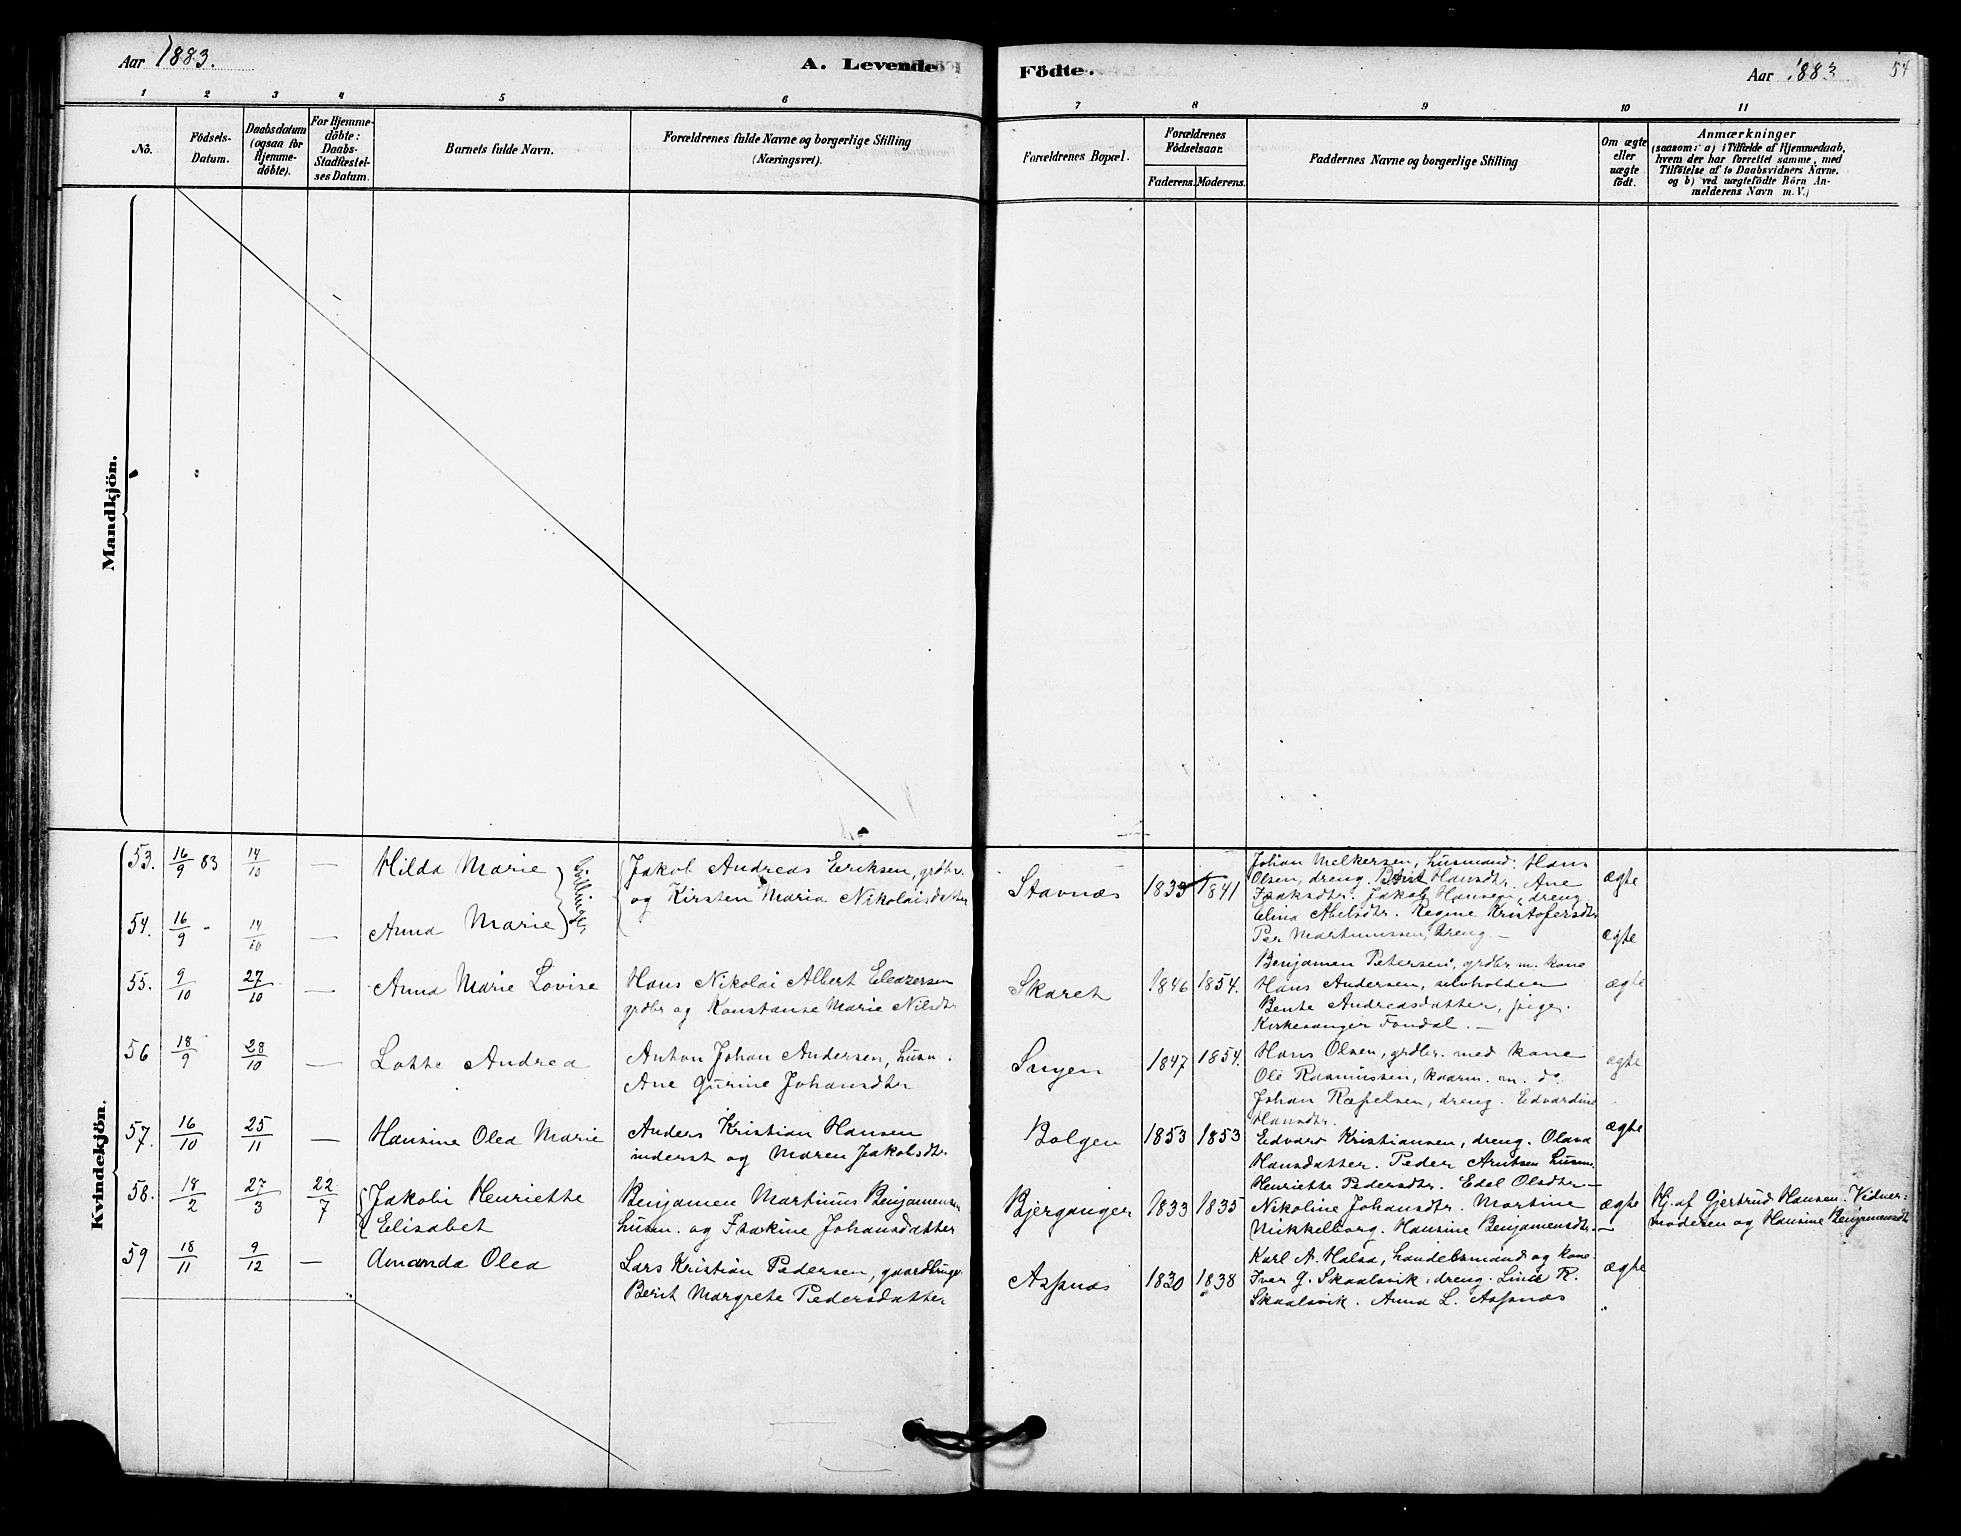 Aar 1883.
A. Levende
Födte.
Aar 1883
54
1 2 3 4 5 6 7 8 9 10 11
No.
Födsels-
Datum.
Daabsdatum
(ogsaa for
Hjemme-
döbte).
For Hjemme-
döbte:
Daabs-
Stadfæstel-
ses Datum.
Barnets fulde Navn.
Forældrenes fulde Navne og borgerlige Stilling
(Næringsvei).
Forældrenes Bopæl.
Forældrenes
Födselsaar.
Faderens. Moderens.
Faddernes Navne og borgerlige Stilling
Om ægte
eller
uægte
födt.
Anmærkninger
(saasom: a) i Tilfælde af Hjemmedaab,
hvem der har forrettet samme, med
Tilföielse af to Daabsvidners Navne,
og b) ved uægtefödte Börn An-
melderens Navn m. V.)
Mandkjön.
Kvindekjön.
53. 16/9 83 14/10 — Hilda Marie
Tvillinger
Jakob Andreas Eriksen, grdbr.
og Kirsten Maria Nikolaisdatter
Stavnæs 1833 1841
Johan Melkersen, husmand. Hans
Olsen, dreng. Berit Hansdtr. Ane
Isaksdtr. Jakob Hansen, dreng
Elina Abelsdtr. Regine Kristofersdtr
Per Martinussen, dreng. —
ægte
54. 16/9 " 14/10 — Anna Marie
ægte
55. 9/10 27/10 — Anna Marie Lovise
Hans Nikolai Albert Eleazersen
grdbr og Konstanse Marie Nilsdtr
Skaret 1846 1854.
Benjamen Petersen, grdbr m. kone
Hans Andersen, selvholder
Bente Andreasdatter, pige.
Kirkesanger Fondal. —
ægte
56 18/9 28/10 — Lotte Andrea
Anton Johan Andersen, husm.
Ane Gurine Johansdtr
1847 1854.
Hans Olsen, grdbr. med kone
Ole Rasmussen, kaarm. m. do.
Johan dreng. Edvardine
Hansdtr.
ægte
57. 16/10 25/11 — Hansine Olea Marie
Anders Kristian Hansen
inderst og Maren Jakobsdtr
Bolgen 1853 1853
Edvard Kristiansen, dreng. Olava
Hansdatter. Peder Arntsen husm.
Henriette Pedersdtr. Edel Olsdtr —
ægte
58. 18/2 27/3 22/7 Jakobi Henriette
Elisabet
Benjamen Martinus Benjamensen
husm. og Isakine Johansdatter
Bjerganger 1833 1835
Nikoline Johansdtr. Martine
Mikkelborg. Hansine Benjamensdtr.
ægte
—
Hj. af Gjertrud Hansen. Vidner:
moderen og Hansine Benjamensdtr
59 18/11 9/12 — Amanda Olea
Lars Kristian Pedersen, gaardbruger
Berit Margrete Pedersdatter
Aspnæs 1830 1838
Karl A. Halsa, handelsmand og kone
Iver G. Skaalsvik, dreng. Lina R.
Skaalsvik. Anna L. Aspnæs
ægte